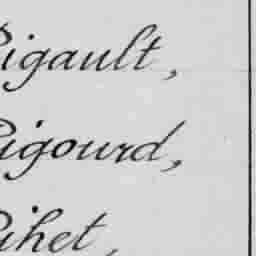 Rigault,
Rigourd,
Rihet,